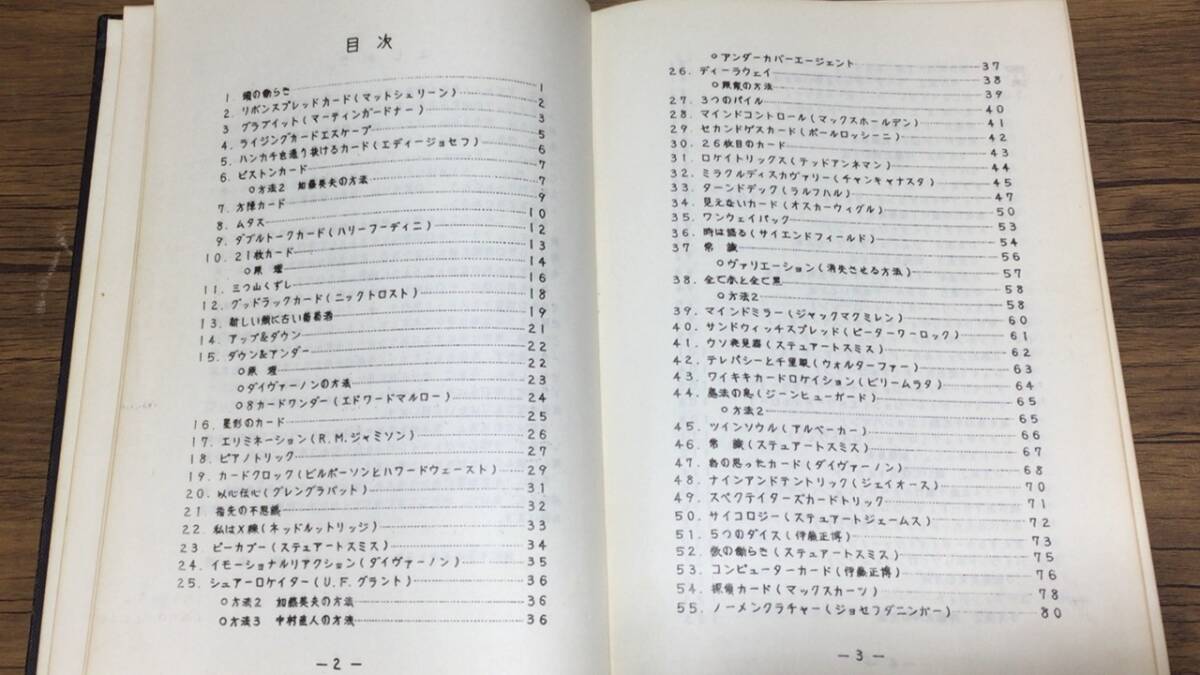 目次
1. 魂の働らき 1
2. リボンスプレッドカード(マットシュリーン) 2
3 グラブイット(マーティンガードナー) 3
4. ライジングカードエスケープ 5
5. ハンカチを通り抜けるカード(エディージョセフ) 6
6. ピストンカード 7
○方法2 加藤英夫の方法 7
7. 方陣カード 9
8. ムタス 10
9. ダブルトークカード(ハリーフーディニ) 12
10. 21枚カード 13
○原理 14
11. 三つ山くずし 16
12. グッドラックカード(ニックトロスト) 18
13. 新しい瓶に古い葡萄酒 19
14. アップ&ダウン 21
15. ダウン&アンダー 22
○原理 22
○ダイヴァーノンの方法 23
○8カードワンダー(エドワードマルロー) 24
16. 星形のカード 25
17. エリミネーション(R.M.ジャミソン) 26
18. ピアノトリック 27
19. カードクロック(ビルボーソンとハワードウェースト) 29
20. 以心伝心(グレングラバット) 31
21. 指先の不思議 32
22. 私はX線(ネッドルットリッジ) 33
23 ピーカブー(ステュアートスミス) 34
24. イモーショナルリアクション(ダイヴァーノン) 35
25. シュアーロケイター(U.F.グラント) 36
○方法2 加藤英夫の方法 36
○方法3 中村直人の方法 36
—2—
○アンダーカバーエージェント 37
26. ディーラウェイ 38
○無氣の方法 39
27. 3つのパイル 40
28. マインドコントロール(マックスホールデン) 41
29. セカンドゲスカード(ポールロッシーニ) 42
30. 26枚目のカード 43
31. ロケイトリックス(テッドアンネマン) 44
32. ミラクルディスカヴァリー(チャンキャナスタ) 45
33. ターンドデック(ラルフハル) 47
34. 見えないカード(オスカーウィグル) 50
35. ワンウェイパック 53
36. 時は語る(サイエンドフィールド) 54
37 常識 56
○ヴァリエーション(消失させる方法) 57
38. 全て赤と全て黒 58
○方法2 58
39. マインドミラー(ジャックマクミレン) 60
40. サンドウィッチスプレッド(ピーターワーロック) 61
41. ウソ発見器(ステュアートスミス) 62
42. テレパシーと千里眼(ウォルターファー) 63
43. ワイキキカードロケイション(ビリームラタ) 64
44. 魔法の息(ジーンヒューガード) 65
○方法2 65
45. ツインソウル(アルベーカー) 66
46. 常識(ステュアートスミス) 67
47. あの思ったカード(ダイヴァーノン) 68
48. ナインアンドテントリック(ジェイオース) 70
49. スペクテイターズカードトリック 71
50. サイコロジー(ステュアートジェームス) 72
51. 5つのダイス(伊藤正博) 73
52. 数の働らき(ステュアートスミス) 75
53. コンピューターカード(伊藤正博) 76
54. 探偵カード(マックスカーツ) 78
55. ノーメンクラチャー(ジョセフダニンガー) 80
—3—